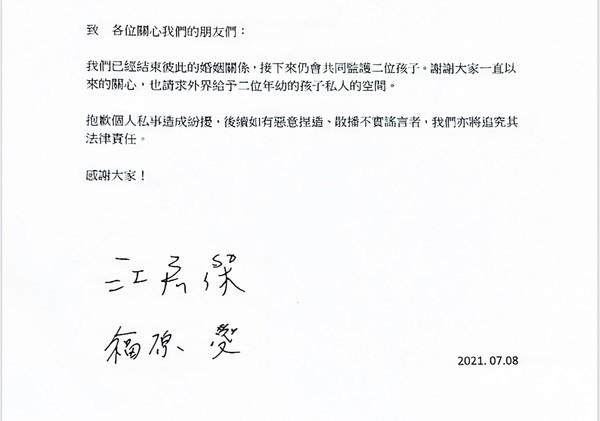 致　各位關心我們的朋友們：
我們已經結束彼此的婚姻關係，接下來仍會共同監護二位孩子。謝謝大家一直以
來的關心，也請求外界給予二位年幼的孩子私人的空間。
抱歉個人私事造成紛擾，後續如有惡意捏造、散播不實謠言者，我們亦將追究其
法律責任。
感謝大家！
江宏傑
福原 愛
2021. 07.08